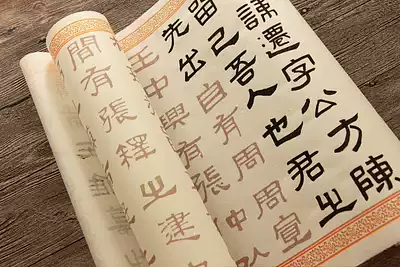 諱遷字公方陳
留己吾人也君之
先出自有周周宣
王中興有張仲以
問有張釋之建